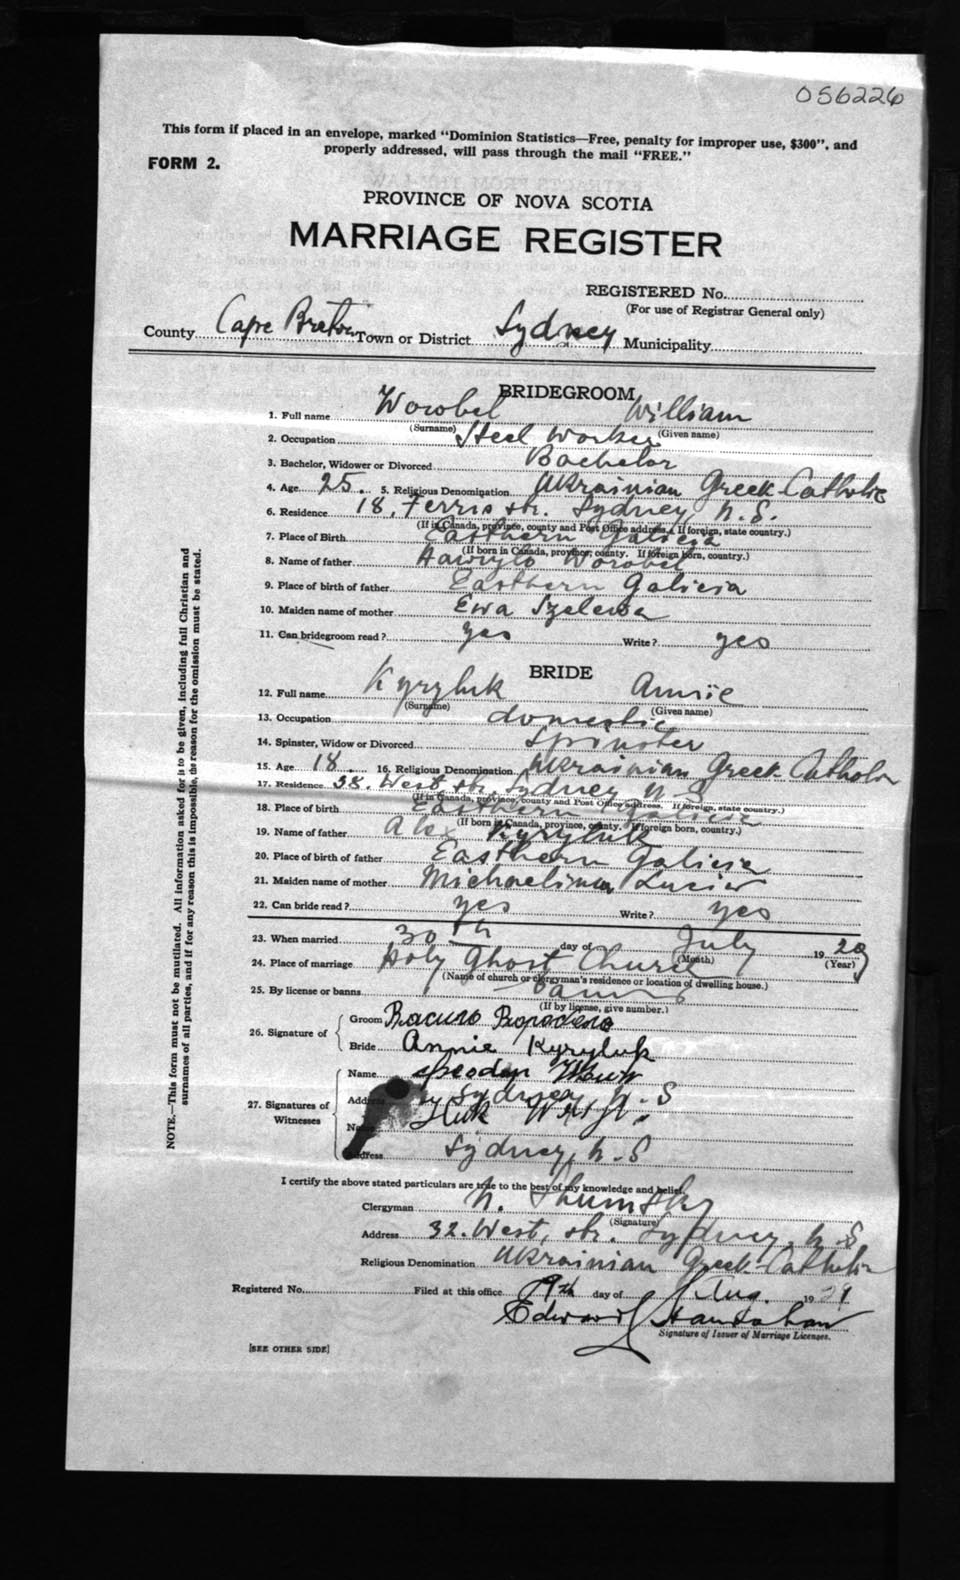 056226
This form if placed in an envelope, marked "Dominion Statistics—Free, penalty for improper use, $300", and
properly addressed, will pass through the mail "FREE."
FORM 2.
PROVINCE OF NOVA SCOTIA
MARRIAGE REGISTER
REGISTERED No.
(For use of Registrar General only)
County Cape Breton Town or District Sydney Municipality
BRIDEGROOM
1. Full name Worobel William
(Surname) (Given name)
2. Occupation Steel Worker
3. Bachelor, Widower or Divorced Bachelor
4. Age 25. 5. Religious Denomination Ukrainian Greek-Catholic
6. Residence 18, Ferris str. Sydney, N.S.
(If in Canada, province, county and Post Office address. If foreign, state country.)
7. Place of Birth Easthern Galicia
(If born in Canada, province, county. If foreign born, country.)
8. Name of father Hawrylo Worobel
9. Place of birth of father Easthern Galicia
10. Maiden name of mother Ewa
11. Can bridegroom read? yes Write? yes
BRIDE
12. Full name Kyryluk Annie
(Surname) (Given name)
13. Occupation domestic
14. Spinster, Widow or Divorced Spinster
15. Age 18 16. Religious Denomination Ukrainian Greek-Catholic
17. Residence 38. West, str. Sydney N S
(If in Canada, province, county and Post Office address. If foreign, state country.)
18. Place of birth Easthern Galicia
(If born in Canada, province, county. If foreign born, country.)
19. Name of father Alex Kyryluk
20. Place of birth of father Easthern Galicia
21. Maiden name of mother Michaelina
22. Can bride read? yes Write? yes
23. When married 30th day of July 1929
(Month) (Year)
24. Place of marriage Holy Ghost Church
(Name of church or clergyman's residence or location of dwelling house.)
25. By license or banns banns
(If by license, give number.)
26. Signature of
Groom
Bride Annie Kyryluk
27. Signatures of Witnesses
Name
Address Sydney N.S
Name
Address Sydney, N.S
I certify the above stated particulars are true to the best of my knowledge and belief.
Clergyman N. Shumsky
(Signature)
Address 32. West, str. Sydney, N.S
Religious Denomination Ukrainian Greek-Catholic
Registered No. Filed at this office 9th day of Aug. 1929
Edward Hanrahan
Signature of Issuer of Marriage Licenses.
[SEE OTHER SIDE]
NOTE.—This form must not be mutilated. All information asked for is to be given, including full Christian and
surnames of all parties, and if for any reason this is impossible, the reason for the omission must be stated.